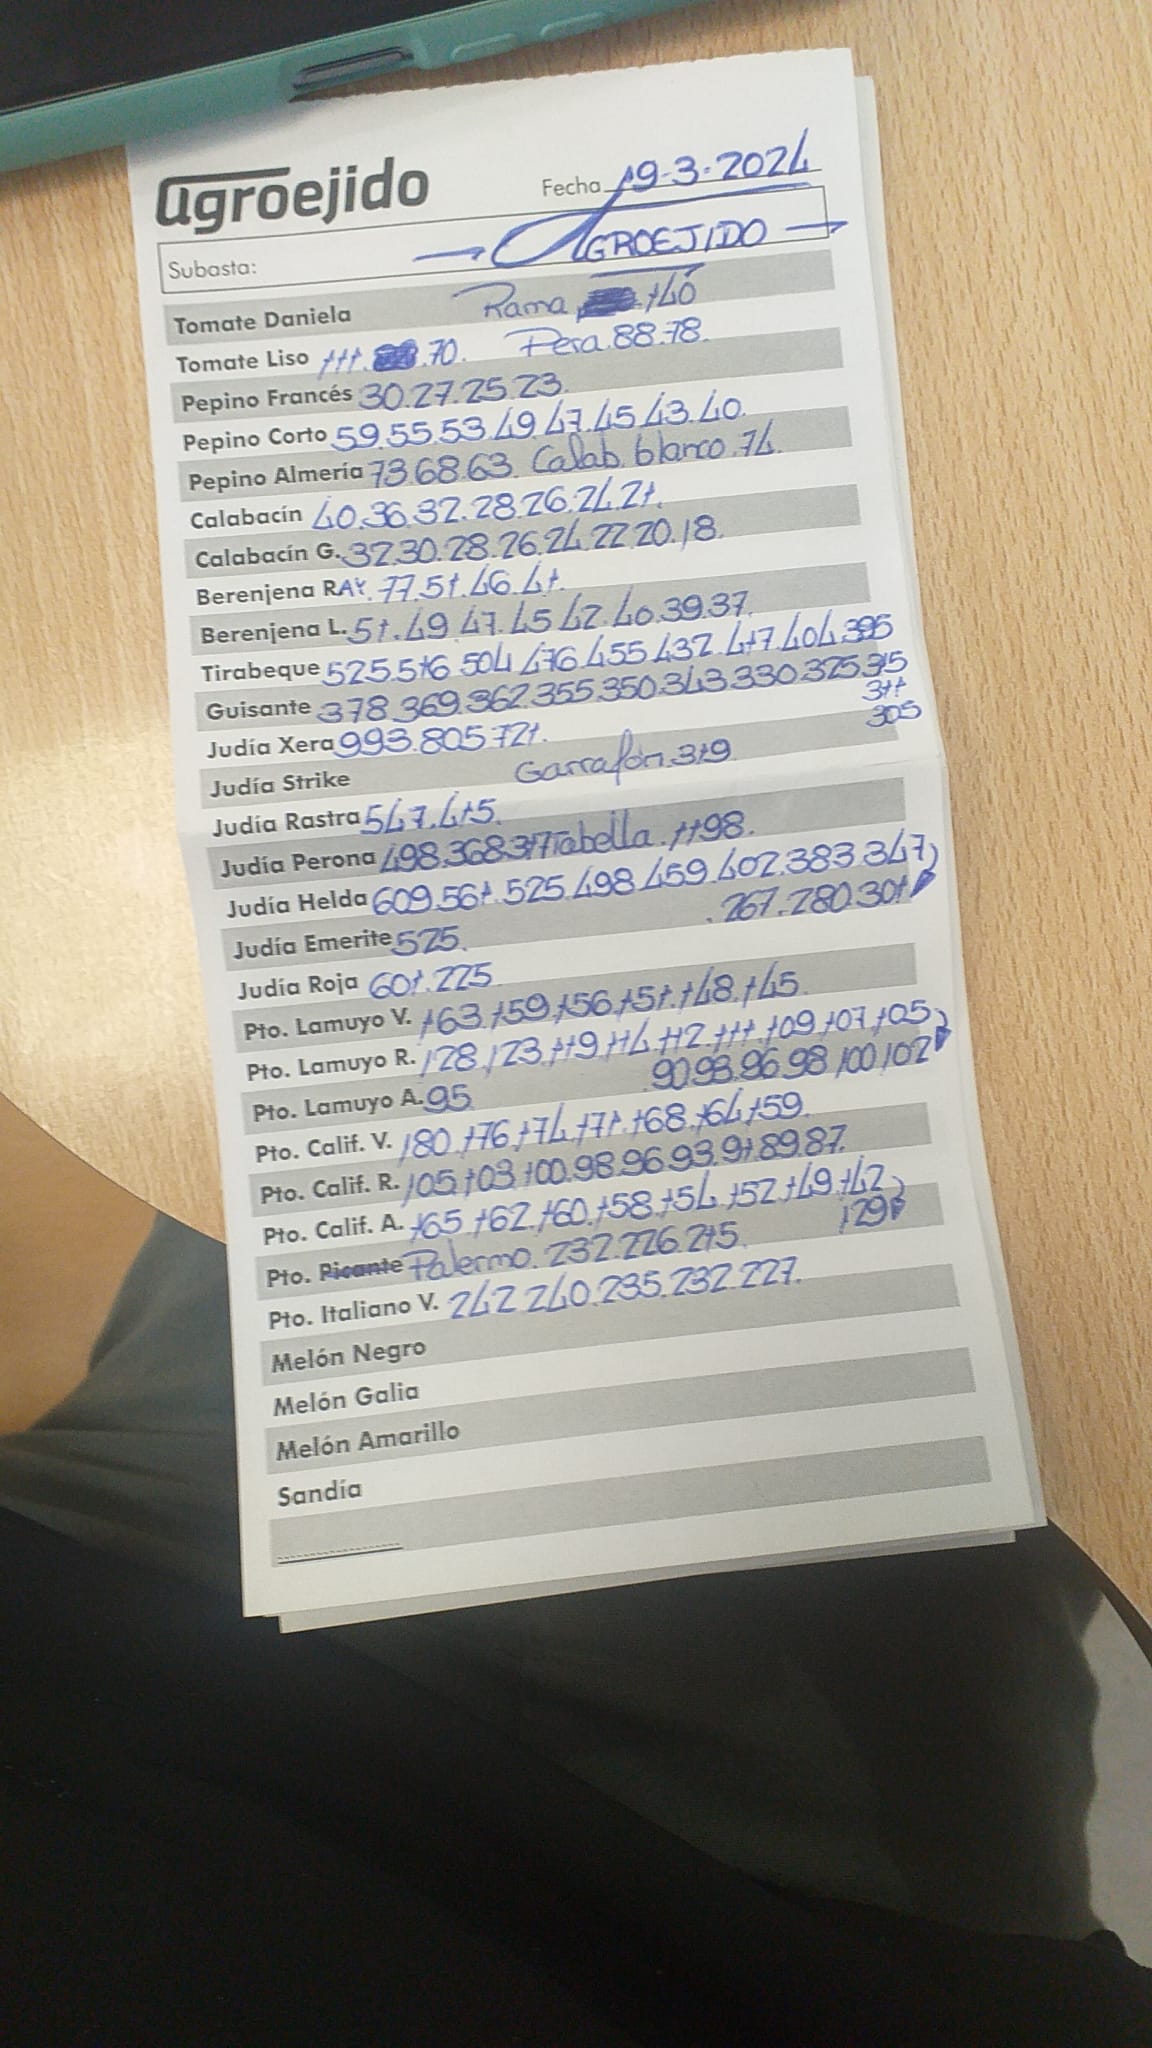 agroejido
Fecha 19-3-2024
Subasta: → AGROEJIDO →
Tomate Daniela Rama 140
Tomate Liso 111. 70. Pera.88.78.
Pepino Francés 30.27.25.23.
Pepino Corto 59.55.53.49.47.45.43.40.
Pepino Almería 73.68.63. Calab. blanco.74.
Calabacín 40.36.32.28.26.24.21.
Calabacín G. 32.30.28.26.24.22.20.18.
Berenjena RAY. 77.51.46.41.
Berenjena L. 51.49.47.45.42.40.39.37.
Tirabeque 525.516.504.476.455.432.417.404.395
Guisante 378.369.362.355.350.343.330.325.315
311
Judía Xera 993.805.721.
305
Judía Strike Garrafón.319
Judía Rastra 547.415.
Judía Perona 498.368.317 Tabella.1198.
Judía Helda 609.561.525.498.459.402.383.347
.267.280.301
Judía Emerite 525.
Judía Roja 601.225
Pto. Lamuyo V. 163.159.156.151.148.145.
Pto. Lamuyo R. 128.123.119.114.112.111.109.107.105
Pto. Lamuyo A. 95 .90.93.96.98.100.102
Pto. Calif. V. 180.176.174.171.168.164.159.
Pto. Calif. R. 105.103.100.98.96.93.91.89.87.
Pto. Calif. A. 165.162.160.158.154.152.149.142
129
Pto. Picante Palermo. 232.226.215.
Pto. Italiano V. 242.240.235.232.227.
Melón Negro
Melón Galia
Melón Amarillo
Sandía